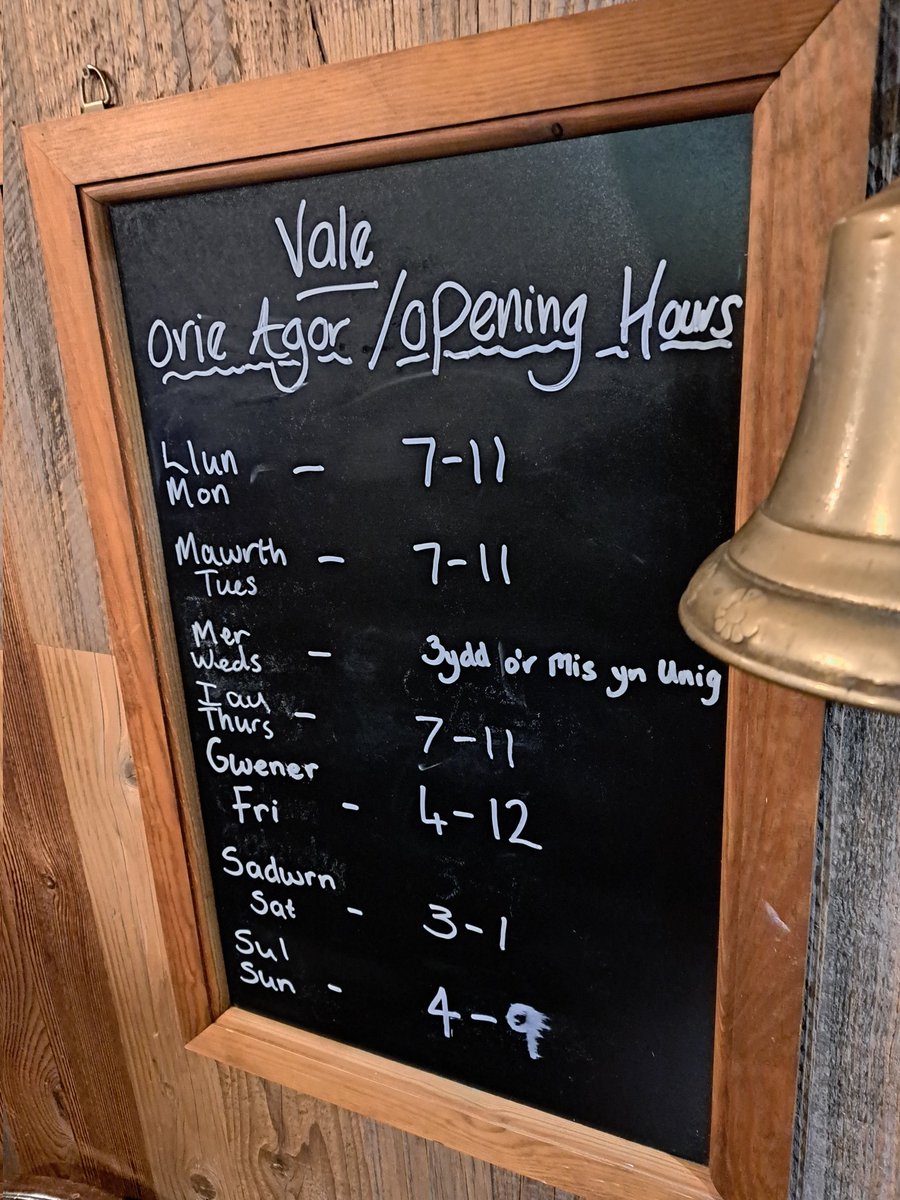 Vale
Orie Agor / Opening Hours
Llun - 7-11
Mon
Mawrth - 7-11
Tues
Mer
Weds - 3ydd o'r Mis yn Unig
Iau
Thurs - 7-11
Gwener
Fri - 4-12
Sadwrn
Sat - 3-1
Sul
Sun - 4-9